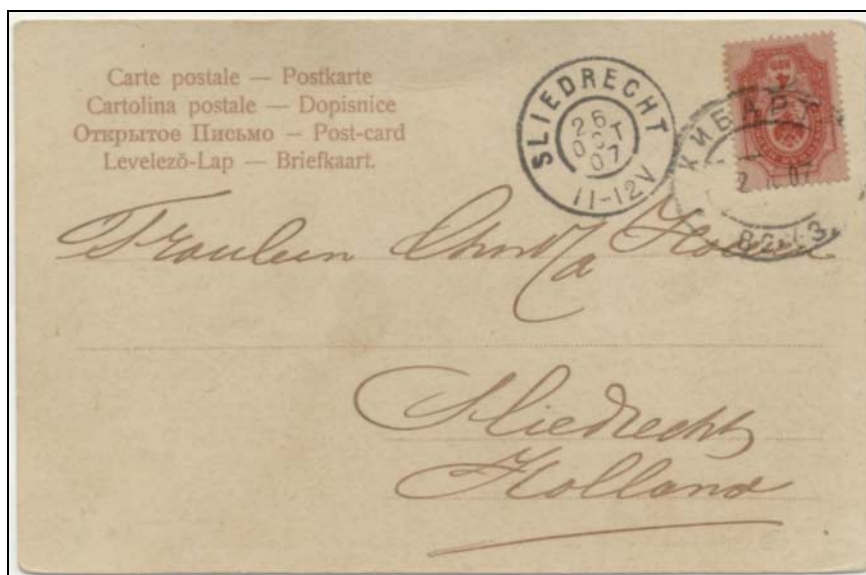 Carte postale — Postkarte
Cartolina postale — Dopisnice
Открытое Письмо — Post-card
Levelező-Lap — Briefkaart.
SLIEDRECHT
26
OCT
07
11-12V
КИБАРТ
07
Fraulein
Sliedrecht
Holland